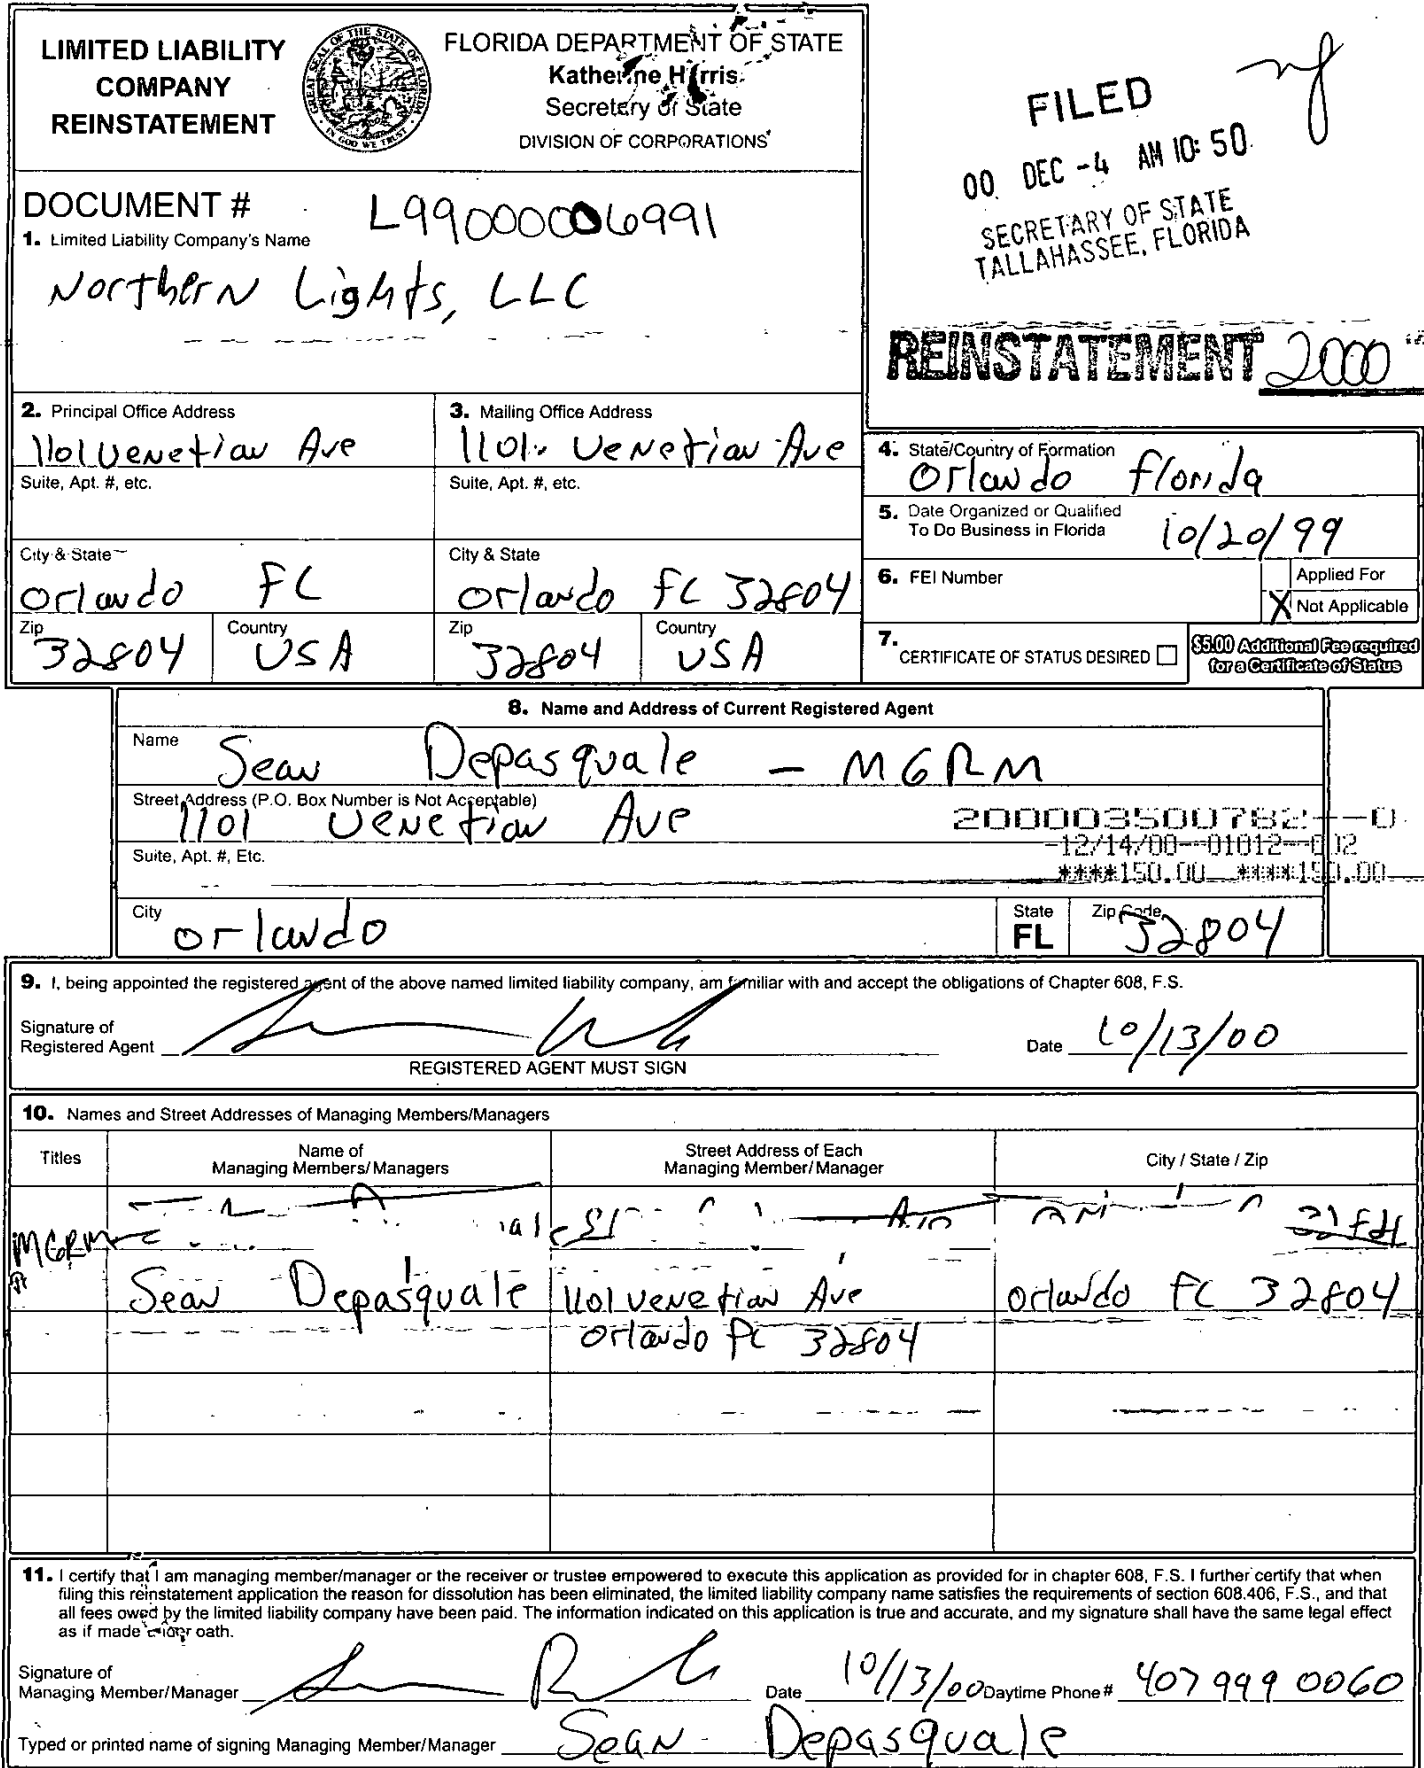 LIMITED LIABILITY
COMPANY
REINSTATEMENT
GREAT SEAL OF THE STATE OF FLORIDA
IN GOD WE TRUST
FLORIDA DEPARTMENT OF STATE
Katherine Harris
Secretary of State
DIVISION OF CORPORATIONS
FILED
00 DEC -4 AM 10:50
SECRETARY OF STATE
TALLAHASSEE, FLORIDA
REINSTATEMENT 2000
DOCUMENT # L99000006991
1. Limited Liability Company's Name
Northern Lights, LLC
2. Principal Office Address
1101 Venetian Ave
Suite, Apt. #, etc.
City & State
Orlando FL
Zip 32804
Country USA
3. Mailing Office Address
1101 Venetian Ave
Suite, Apt. #, etc.
City & State
Orlando FL 32804
Zip 32804
Country USA
4. State/Country of Formation
Orlando Florida
5. Date Organized or Qualified
To Do Business in Florida 10/20/99
6. FEI Number
Applied For
X Not Applicable
7. CERTIFICATE OF STATUS DESIRED
$5.00 Additional Fee required
for a Certificate of Status
8. Name and Address of Current Registered Agent
Name Sean Depasquale - MGRM
Street Address (P.O. Box Number is Not Acceptable)
1101 Venetian Ave
200003500782--0
-12/14/00--01012--002
****150.00 ****150.00
Suite, Apt. #, Etc.
City Orlando
State FL
Zip Code 32804
9. I, being appointed the registered agent of the above named limited liability company, am familiar with and accept the obligations of Chapter 608, F.S.
Signature of
Registered Agent
Date 10/13/00
REGISTERED AGENT MUST SIGN
10. Names and Street Addresses of Managing Members/Managers
Titles
Name of
Managing Members/Managers
Street Address of Each
Managing Member/Manager
City / State / Zip
MGRM
Sean Depasquale 1101 Venetian Ave Orlando FL 32804
Orlando FL 32804
11. I certify that I am managing member/manager or the receiver or trustee empowered to execute this application as provided for in chapter 608, F.S. I further certify that when
filing this reinstatement application the reason for dissolution has been eliminated, the limited liability company name satisfies the requirements of section 608.406, F.S., and that
all fees owed by the limited liability company have been paid. The information indicated on this application is true and accurate, and my signature shall have the same legal effect
as if made under oath.
Signature of
Managing Member/Manager
Date 10/13/00 Daytime Phone # 407 999 0060
Typed or printed name of signing Managing Member/Manager Sean Depasquale